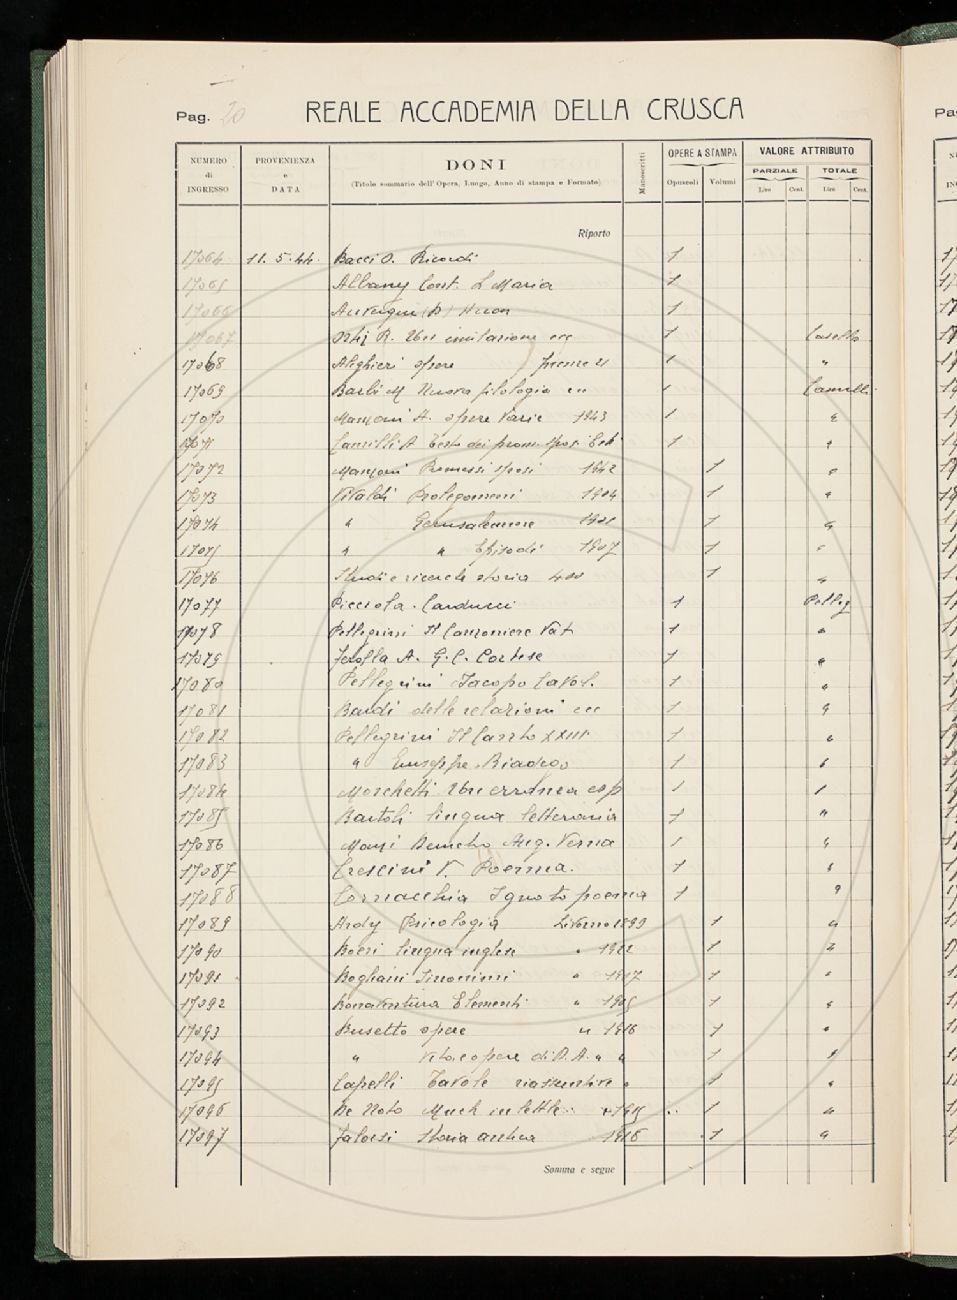 Pag. 20 REALE ACCADEMIA DELLA CRUSCA
NUMERO di INGRESSO PROVENIENZA e DATA DONI (Titolo sommario dell'Opera, Luogo, Anno di stampa e Formato) Manoscritti OPERE A STAMPA Opuscoli Volumi VALORE ATTRIBUITO PARZIALE Lire Cent. TOTALE Lire Cent.
Riporto
17064 11.5.44. Bacci O. Ricordi 1
17065 Albany Cont. L Maria 1
17066 1
17067 R. Una imitazione ecc 1
17068 Alighieri opere Firenze 21 1 "
17069 Barbi M Nuova filologia ecc 1
17070 Manzoni A. opere Varie 1943 1 "
17071 Camilli A Testo dei prom. sposi 1 "
17072 Manzoni Promessi sposi 1942 1 "
17073 Vivaldi Prolegomeni 1904 1 "
17074 " Gerusalemme 1901 1 "
17075 " " Episodi 1907 1 "
17076 Studi e ricerche storia 400 1 "
17077 Picciola. Carducci 1 Pelleg
17078 Pellegrini Il Canzoniere Vat 1 "
17079 A. G. C. Cortese 1 "
17080 Pellegrini Jacopo Cavol. 1 "
17081 Bardi delle relazioni ecc 1 "
17082 Pellegrini Il Canto XXIII 1 "
17083 " Giuseppe Biadego 1 "
17084 Morchetti Una erronea esp 1 "
17085 Bartoli lingua letteraria 1 "
17086 Demetrio Aug. Verna 1 "
17087 Crescini V. Poema. 1 "
17088 Cornacchia Ignoto poema 1 "
17089 Ardy Psicologia Livorno 1899 1 "
17090 Boeri lingua inglese " 1922 1 "
17091 Boghani Sinonimi " 1917 1 "
17092 Bonaventura Elementi " 1905 1 "
17093 Busetto opere " 1916 1 "
17094 " Vita e opere di D. A. " " 1 "
17095 Capelli Tavole riassuntive " 1 "
17096 De Noto lett. " 1915 1 "
17097 Storia antica 1916 1 "
Somma e segue